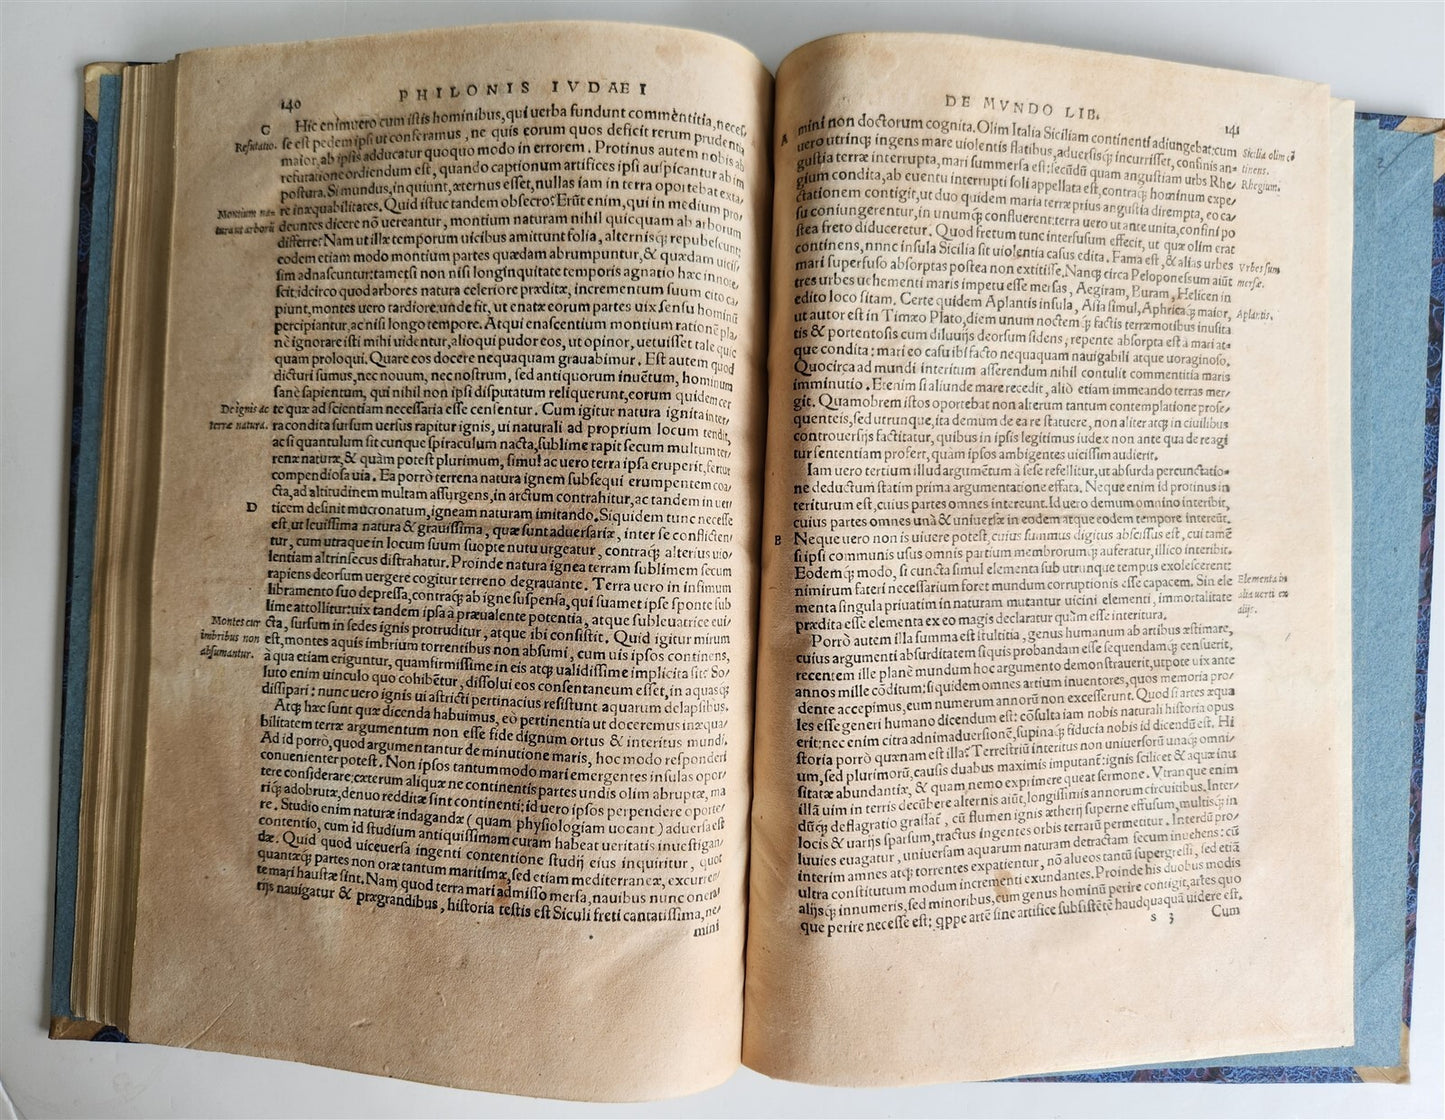 140
PHILONIS IVDAEI
C
Hic enimuero cum istis hominibus, qui uerba fundunt commẽtitia, neces/
Refutatio.
se est pedem ipsi ut conferamus, ne quis eorum quos deficit rerum prudentia
maior, ab ipsis adducatur quoquo modo in errorem. Protinus autem nobis ab
refutatione ordiendum est, quando captionum artifices ipsi auspicantur ab im
postura. Si mundus, inquiunt, æternus esset, nullas iam in terra oportebat exta/
Montium na=
re inæquabilitates. Quid istuc tandem obsecro? Erũt enim, qui in medium pro/
tura ut arborũ
deuntes dicere nõ uereantur, montium naturam nihil quicquam ab arborum
differre: Nam ut illæ temporum uicibus amittunt folia, alternisq; repubescunt:
eodem etiam modo montium partes quædam abrumpuntur, & quædam uicis/
sim adnascuntur: tametsi non nisi longinquitate temporis agnatio hæc innote/
scit, idcirco quod arbores natura celeriore præditæ, incrementum suum cito ca/
piunt, montes uero tardiore: unde fit, ut enatæ eorum partes uix sensu hominũ
percipiantur, ac nisi longo tempore. Atqui enascentium montium rationẽ pla/
nè ignorare isti mihi uidentur, alioqui pudor eos, ut opinor, uetuisset tale quic
quam proloqui. Quare eos docere nequaquam grauabimur. Est autem quod
dicturi sumus, nec nouum, nec nostrum, sed antiquorum inuẽtum, hominum
sanè sapientum, qui nihil non ipsi disputatum reliquerunt, eorum quidem cer
De ignis ac
te quæ ad scientiam necessaria esse censentur. Cum igitur natura ignita inter/
terræ natura.
ra condita sursum uersus rapitur ignis, ui naturali ad proprium locum tendit,
ac si quantulum sit cunque spiraculum nacta, sublime rapit secum multum ter/
renæ naturæ, & quàm potest plurimum, simul ac uero terra ipsa eruperit, fertur
compendiosa uia. Ea porrò terrena natura ignem subsequi erumpentem coa/
cta, ad altitudinem multam assurgens, in arctum contrahitur, ac tandem in uer/
D
ticem desinit mucronatum, igneam naturam imitando. Siquidem tunc necesse
est, ut leuissima natura & grauissima, quæ sunt aduersariæ, inter se conflicten/
tur, cum utraque in locum suum suopte nutu urgeatur, contraq; alterius uio/
lentiam altrinsecus distrahatur. Proinde natura ignea terram sublimem secum
rapiens deorsum uergere cogitur terreno degrauante. Terra uero in infimum
libramento suo depressa, contraq; ab igne suspensa, qui suamet ipse sponte sub
lime attollitur: uix tandem ipsa à præualente potentia, atque subleuatrice eui/
Montes cur
cta, sursum in sedes ignis protruditur, atque ibi consistit. Quid igitur mirum
imbribus non
est, montes aquis imbrium torrentibus non absumi, cum uis ipsos continens,
absumantur.
à qua etiam eriguntur, quamfirmissime in eis atq; ualidissime implicita sit? So/
luto enim uinculo quo cohibẽtur, dissolui eos consentaneum esset, in aquasq;
dissipari: nunc uero ignis ui astricti pertinacius resistunt aquarum delapsibus.
Atq; hæc sunt quæ dicenda habuimus, eò pertinentia ut doceremus inæqua/
bilitatem terræ argumentum non esse fide dignum ortus & interitus mundi.
Ad id porrò, quod argumentantur de minutione maris, hoc modo responderi
conuenienter potest. Non ipsos tantummodo mari emergentes insulas opor/
tere considerare: cæterum aliquæ ne continentis partes undis olim abruptæ, ma
riq; adobrutæ, denuo redditæ sint continenti: id uero ipsos perpendere oporte/
re. Studio enim naturæ indagandæ (quam physiologiam uocant) aduersa est
contentio, cum id studium antiquissimam curam habeat ueritatis inuestigan/
dæ. Quid quod uiceuersa ingenti contentione studij eius inquiritur, quot
quantæq; partes non oræ tantum maritimæ, sed etiam mediterraneæ, excurren/
te mari haustæ sint. Nam quod terra mari admisso mersa, nauibus nunc onera/
rijs nauigatur & prægrandibus, historia testis est Siculi freti cantatissima, ne/
mini
DE MVNDO LIB.
141
A
mini non doctorum cognita. Olim Italia Siciliam continenti adiungebat: cum
Sicilia olim cõ
uero utrinq; ingens mare uiolentis flatibus, aduersisq; incurrisset, confinis an/
tinens.
gustia terræ interrupta, mari summersa est: secũdũ quam angustiam urbs Rhe/
Rhegium.
gium condita, ab euentu interrupti soli appellata est, contraq; hominum expe/
ctationem contigit, ut duo quidem maria terræ prius angustia dirempta, eo ca/
su coniungerentur, in unumq; confluerent: terra uero ut ante unita, confini po
stea freto diduceretur. Quod fretum tunc interfusum effecit, ut quæ olim erat
continens, nnnc insula Sicilia sit uiolentia casus edita. Fama est, & alias urbes
Vrbes sum
mari superfuso absorptas postea non extitisse. Nanq; circa Peloponesum aiũt
mersæ.
tres urbes uehementi maris impetu esse mersas, Aegiram, Buram, Helicen in
edito loco sitam. Certe quidem Aplantis insula, Asia simul, Aphricaq; maior,
Aplantis.
ut autor est in Timæo Plato, diem unum noctemq; factis terræmotibus inusita
tis & portentosis cum diluuijs deorsum sidens, repente absorpta est à mari at=
que condita: mari eo casu ibi facto nequaquam nauigabili atque uoraginoso.
Quocirca ad mundi interitum asserendum nihil contulit commentitia maris
imminutio. Etenim si aliunde mare recedit, aliò etiam immeando terras mer/
git. Quamobrem istos oportebat non alterum tantum contemplatione prose/
quenteis, sed utrunque, ita demum de ea re statuere, non aliter atq; in ciuilibus
controuersijs factitatur, quibus in ipsis legitimus iudex non ante qua de re agi
tur sententiam profert, quam ipsos ambigentes uicissim audierit.
Iam uero tertium illud argumẽtum à sese refellitur, ut absurda percunctatio=
ne deductum statim prima argumentatione effata. Neque enim id protinus in
teriturum est, cuius partes omnes intereunt. Id uero demum omnino interibit,
cuius partes omnes unà & uniuersæ in eodem atque eodem tempore intereũt.
B
Neque uero non is uiuere potest, cuius summus digitus abscissus est, cui tamẽ
si ipsi communis usus omnis partium membrorumq; auferatur, illico interibit.
Eodemq; modo, si cuncta simul elementa sub utrunque tempus exolescerent:
nimirum fateri necessarium foret mundum corruptionis esse capacem. Sin ele
Elementa in
menta singula priuatim in naturam mutantur uicini elementi, immortalitate
alia uerti ex
prædita esse elementa ex eo magis declaratur quàm esse interitura.
alijs.
Porrò autem illa summa est stultitia, genus humanum ab artibus æstimare,
cuius argumenti absurditatem si quis probandam esse sequendamq; censuerit,
recentem ille planè mundum hoc argumento demonstrauerit, utpote uix ante
annos mille cõditum: siquidem omnes artium inuentores, quos memoria pro/
dente accepimus, eum numerum annorũ non excesserunt. Quod si artes æqua
les esse generi humano dicendum est: cõsulta iam nobis naturali historia opus
erit: nec enim citra adnimaduersionẽ, supinaq; fiducia nobis id dicendũ est. Hi
storia porrò quænam est illa? Terrestriũ interitus non uniuersorũ unaq; omni/
um, sed plurimorũ, causis duabus maximis imputant: ignis scilicet & aquæ inu
sitatæ abundantiæ, & quam nemo exprimere queat sermone. Vtranque enim
illã uim in terris decũbere alternis aiũt, longissimis annorum circuitibus. Inter/
dũq; deflagratio grassat, cũ flumen ignis ætherij superne effusum, multisq; in
locis & uarijs sparsum, tractus ingentes orbis terrarũ permetitur. Interdũ pro/
luuies euagatur, uniuersam aquarum naturam detractam secum inuehens: cũ
interim amnes atq; torrentes expatientur, nõ alueos tantũ supergressi, sed etiã
ultra constitutum modum incrementi exundantes. Proinde his duobus modis
alijsq; innumeris, sed minoribus, cum genus hominũ perire contigit, artes quo
que perire necesse est: qppe artẽ sine artifice subsistẽtẽ haudquaquã uidere est.
s 3
Cum